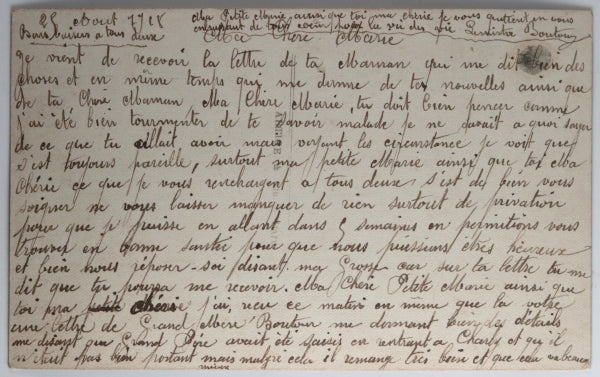 25 Août 1918 Ma Petite Mimie ainsi que toi ma chérie je vous quittent en vous
Bons Baisers a tous deux embrassant de tout coeur pour la vie Boutour
Ma Chère Marie
Je vient de recevoir la lettre de ta Maman qui me dit bien des
choses et en même temps qui me donne de tes nouvelles ainsi que
de ta Chère Maman Ma Chère Marie, tu doit bien penser comme
j'ai été bien tourmenter de te savoir malade je ne savait a quoi
de ce que tu allait avoir mais voyant les circonstance je voit que
s'est toujours pareille, surtout ma petite Marie ainsi que toi Ma
Chérie ce que je vous renchargent a tous deux s'est de bien vous
soigner ne vous laisser manquer de rien surtout de privation
pour que je puisse en allant dans 5 semaines en permitions vous
trouver en bonne santer pour que nous puissions êtres heureux
et bien nous réposer soi disant ma Grosse car sur ta lettre tu me
dit que tu pourra me recevoir. Ma Chère Petite Marie ainsi que
toi ma chérie j'ai reçu ce matin en même que la votre
une lettre de Grand Mère Boutour me donnant bien des détails
me disant que Grand Père avait été saisis en rentrant a et qu'il
n'était pas bien portant mais malgré cela il remange très bien et que cela va beaucoup
mieux
ANGLE